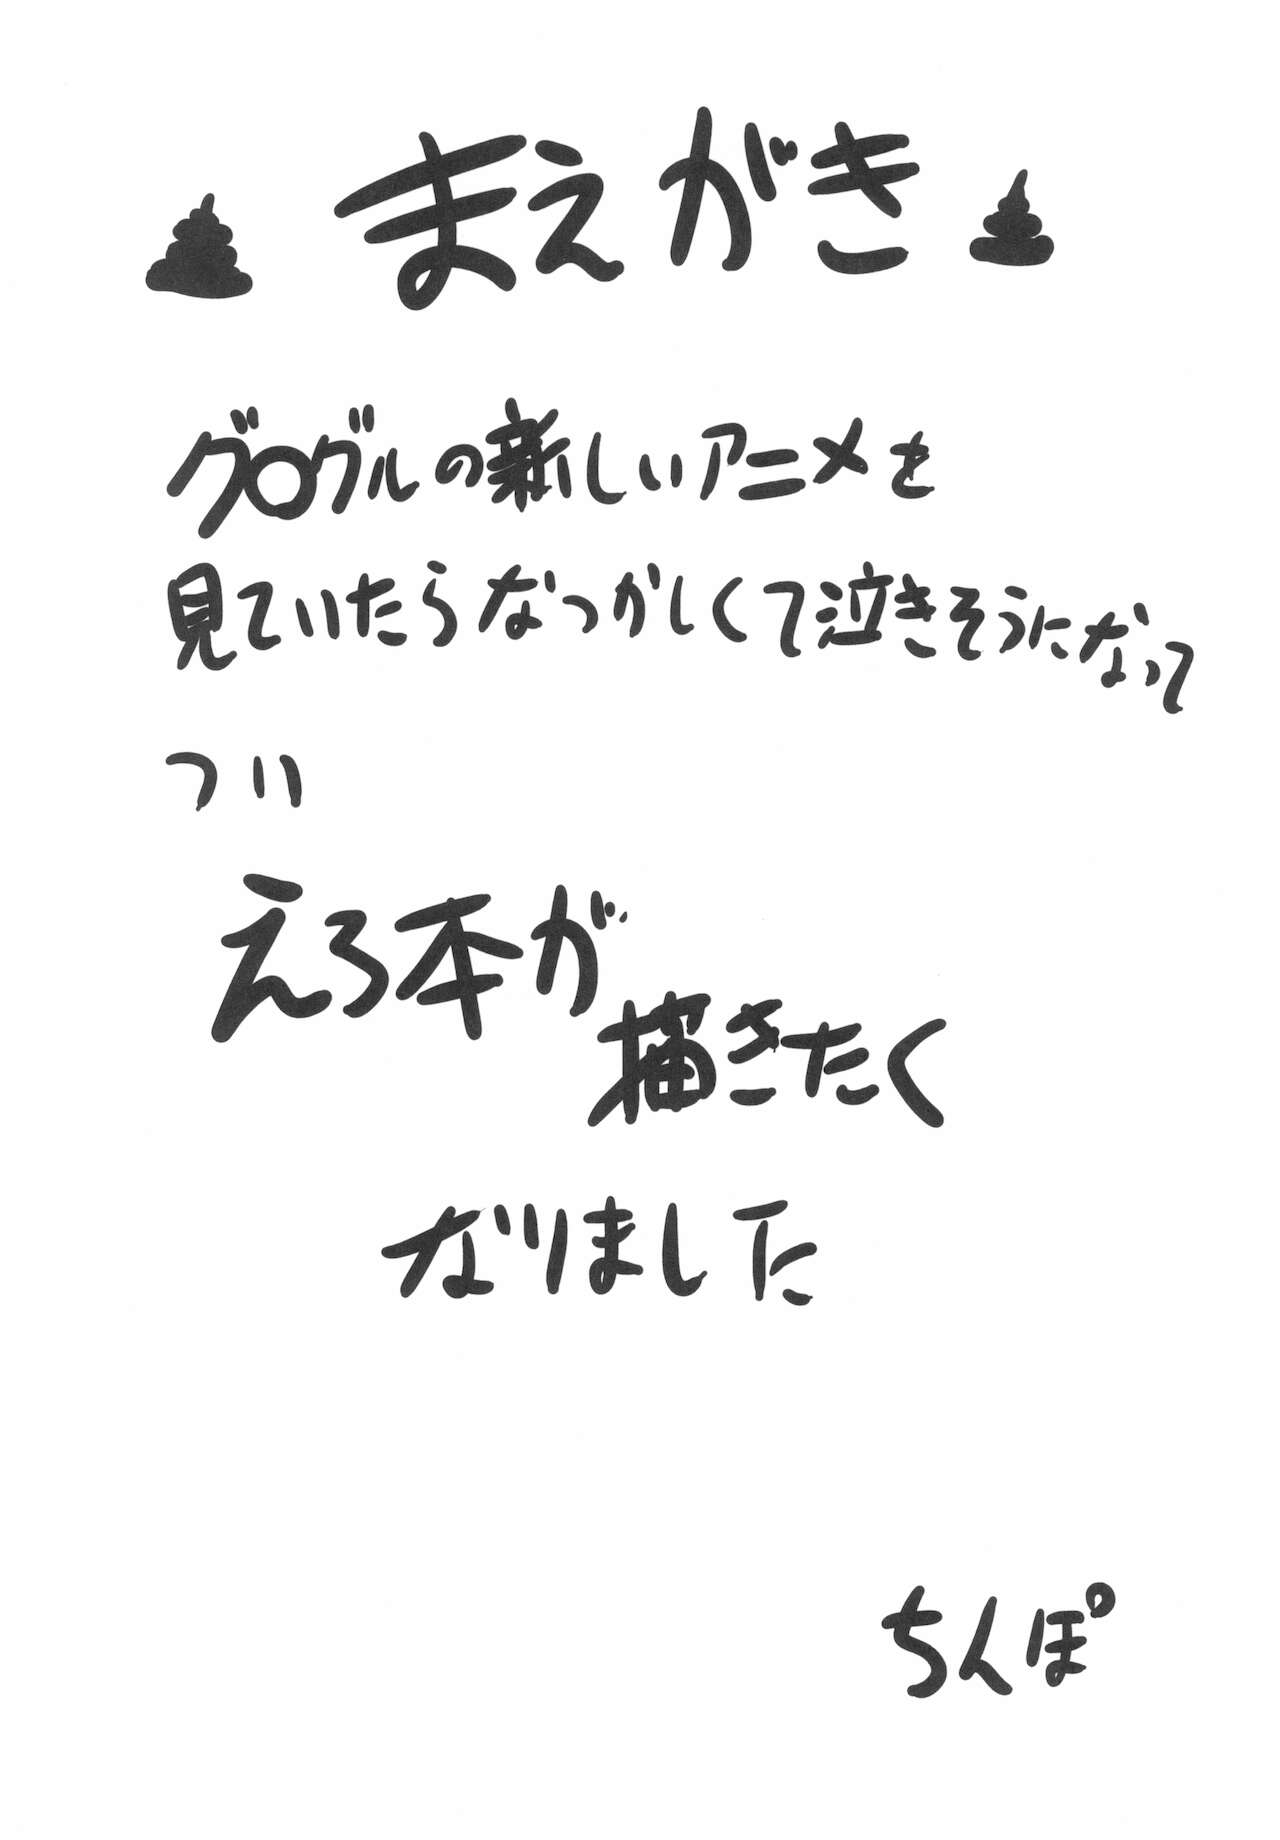 まえがき
グ〇グルの新しいアニメを
見ていたらなつかしくて泣きそうになって
つい
えろ本が
描きたく
なりました
ちんぽ